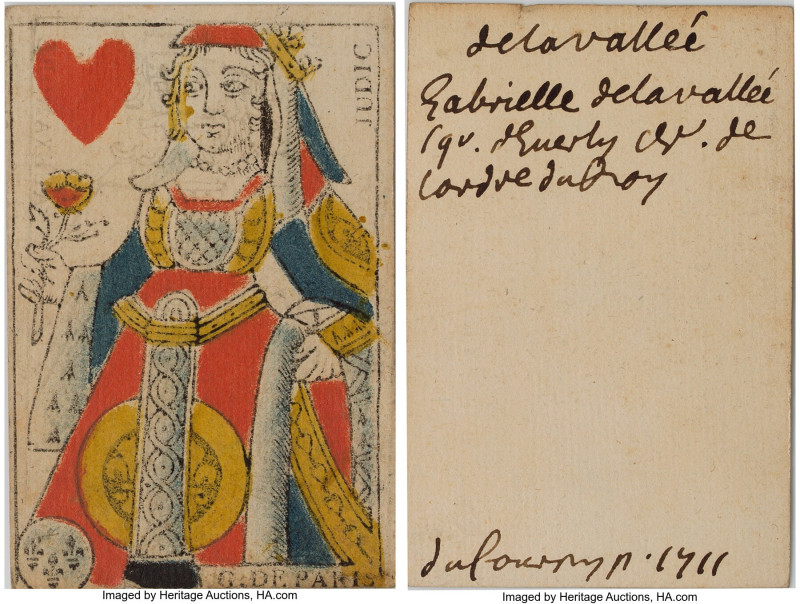 JUDIC
G. DE PARIS
Imaged by Heritage Auctions, HA.com
delavalleé
Gabrielle delavalleé
sgr. dEuerly cher. de
Lordre du Roy
1711
Imaged by Heritage Auctions, HA.com